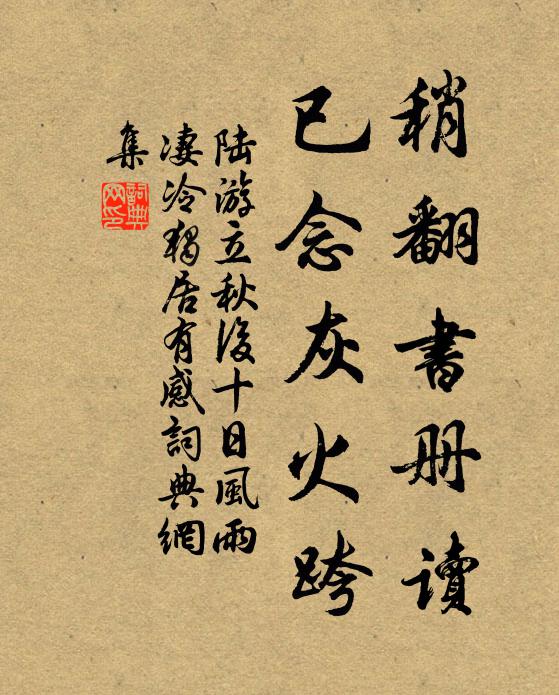 稍翻書册讀
已念灰火跨
陆游立秋後十日風雨
凄冷獨居有感詞典網
集
詞典网印